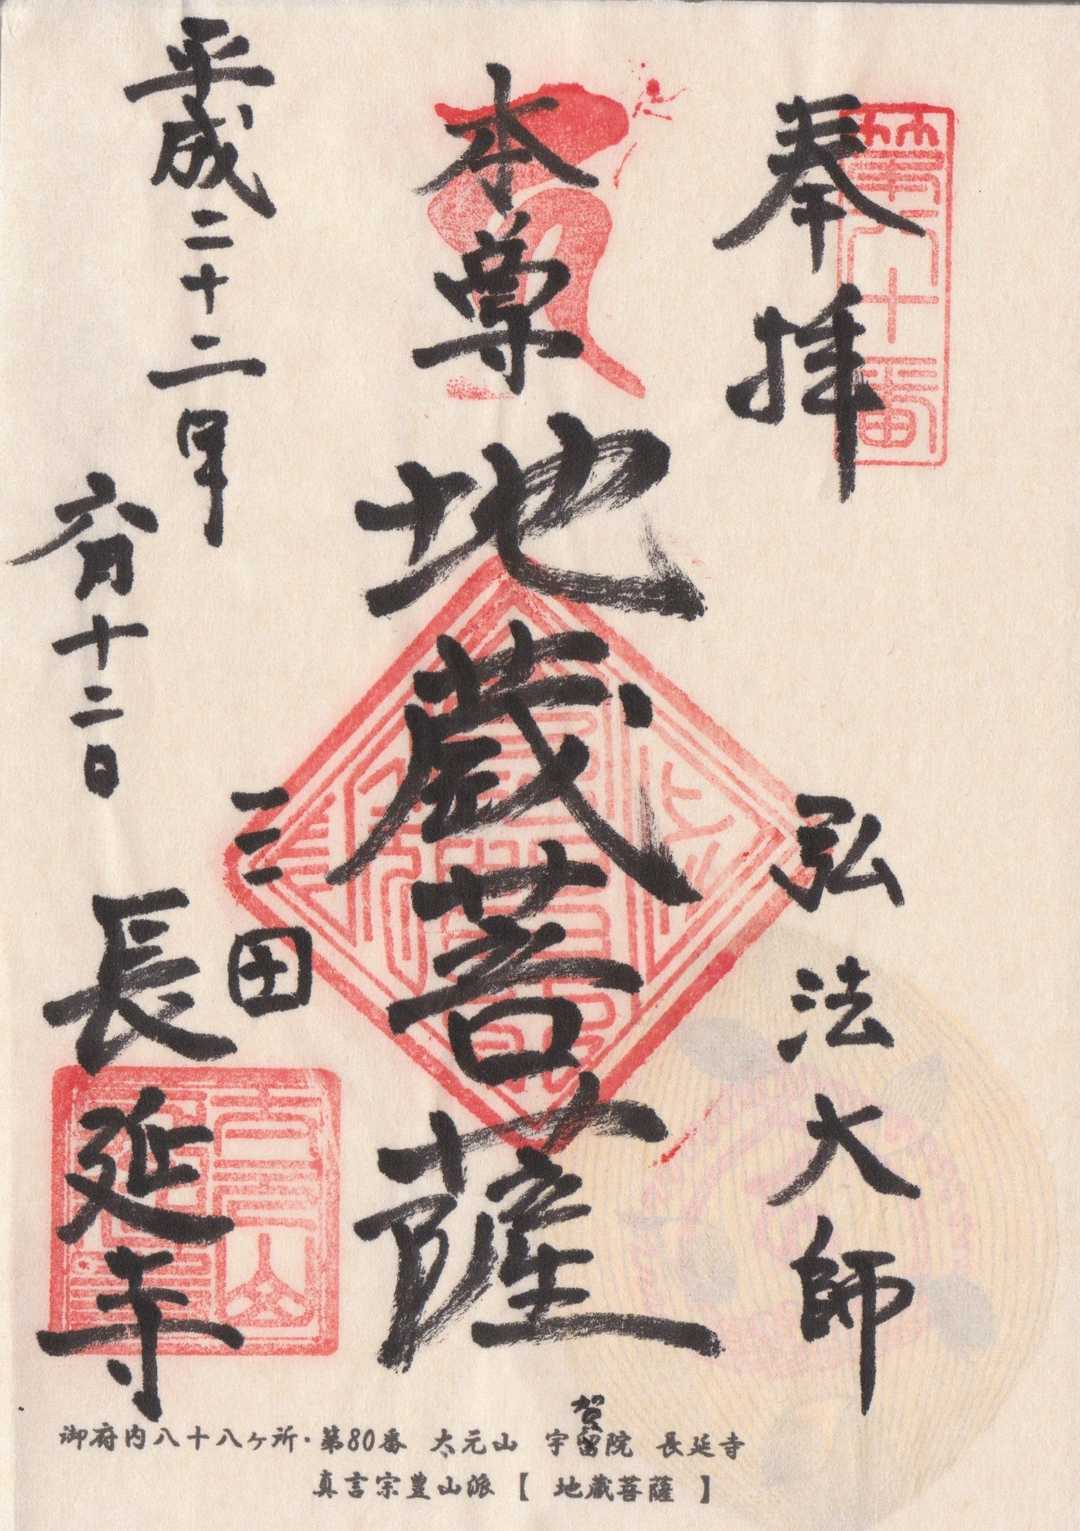 第八十番
奉拝
弘法大師
本尊
地蔵菩薩
平成二十二年
六月十二日
三田
長延寺
賀
御府内八十八ヶ所・第80番 太元山 宇留院 長延寺
真言宗豊山派【 地蔵菩薩 】